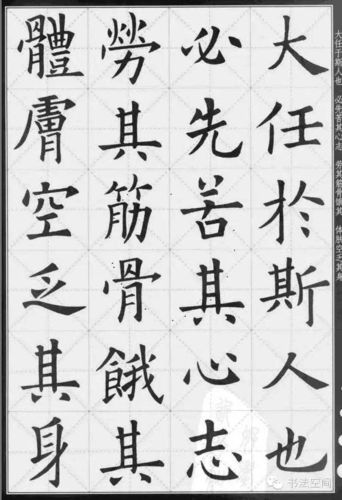 大任於斯人也
必先苦其心志
勞其筋骨餓其
體膚空乏其身
大任于斯人也 必先苦其心志 劳其筋骨饿其 体肤空乏其身
书法空间